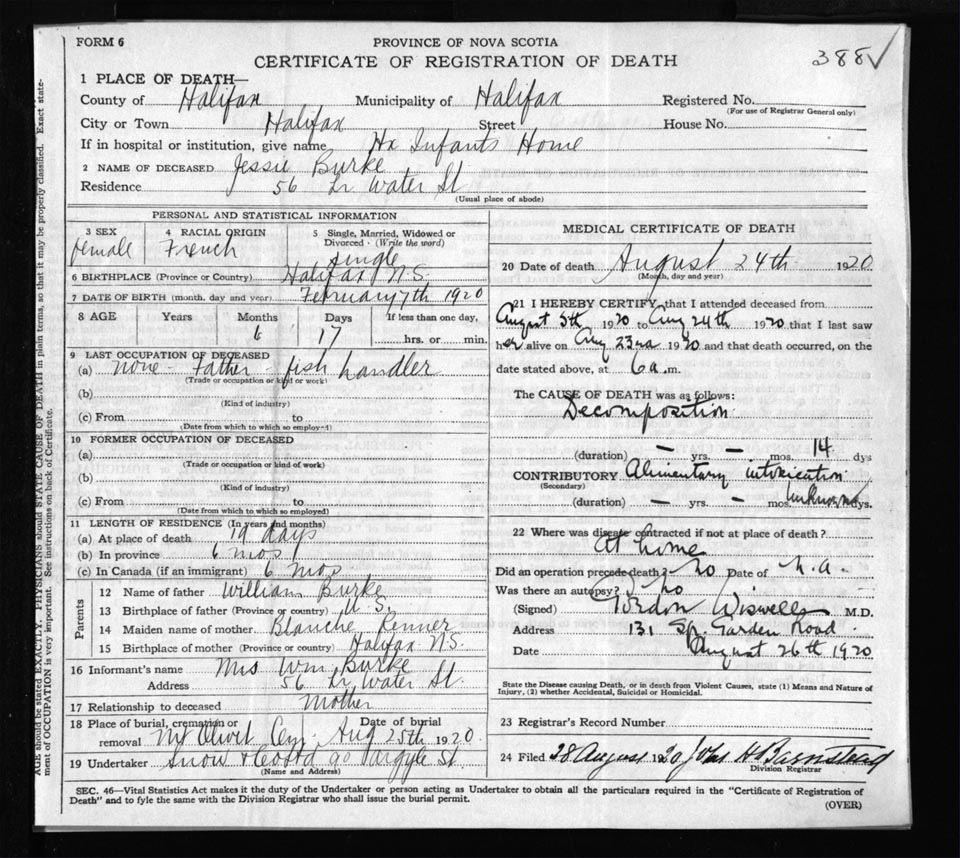 FORM 6
PROVINCE OF NOVA SCOTIA
CERTIFICATE OF REGISTRATION OF DEATH
388 ✓
1 PLACE OF DEATH—
County of Halifax Municipality of Halifax Registered No.
(For use of Registrar General only)
City or Town Halifax Street House No.
If in hospital or institution, give name Hx Infants Home
2 NAME OF DECEASED Jessie Burke
Residence 56 Lr Water St
(Usual place of abode)
PERSONAL AND STATISTICAL INFORMATION
3 SEX female
4 RACIAL ORIGIN French
5 Single, Married, Widowed or Divorced (Write the word) single
6 BIRTHPLACE (Province or Country) Halifax N.S.
7 DATE OF BIRTH (month, day and year) February 7th 1920
8 AGE Years Months Days If less than one day,
6 17 hrs. or min.
9 LAST OCCUPATION OF DECEASED
(a) none - Father - fish handler
(Trade or occupation or kind or work)
(b)
(Kind of industry)
(c) From to
(Date from which to which so employed)
10 FORMER OCCUPATION OF DECEASED
(a)
(Trade or occupation or kind of work)
(b)
(Kind of industry)
(c) From to
(Date from which to which so employed)
11 LENGTH OF RESIDENCE (In years and months)
(a) At place of death 19 days
(b) In province 6 mos
(c) In Canada (if an immigrant) 6 mos
Parents
12 Name of father William Burke
13 Birthplace of father (Province or country) U.S.
14 Maiden name of mother Blanche Renner
15 Birthplace of mother (Province or country) Halifax N.S.
16 Informant's name Mrs Wm Burke
Address 56 Lr Water St.
17 Relationship to deceased Mother
18 Place of burial, cremation or removal Mt Olivet Cem. Date of burial Aug 25th 1920
19 Undertaker Snow & Co Ltd 90 Argyle St
(Name and Address)
MEDICAL CERTIFICATE OF DEATH
20 Date of death August 24th 1920
(Month, day and year)
21 I HEREBY CERTIFY, that I attended deceased from
August 5th 1920 to Aug 24th 1920 that I last saw
her alive on Aug 23rd 1920 and that death occurred, on the
date stated above, at 6 a.m.
The CAUSE OF DEATH was as follows:
Decomposition
(duration) — yrs. — mos. 14 dys
CONTRIBUTORY Alimentary intoxication
(Secondary)
(duration) — yrs. — mos. unknown dys.
22 Where was disease contracted if not at place of death?
At home
Did an operation precede death? no Date of n.a.
Was there an autopsy? no
(Signed) Gordon Wiswell M.D.
Address 131 Sp. Garden Road
Date August 26th 1920
State the Disease causing Death, or in death from Violent Causes, state (1) Means and Nature of
Injury, (2) whether Accidental, Suicidal or Homicidal.
23 Registrar's Record Number
24 Filed 28 August 1920 John H Barnstead
Division Registrar
SEC. 46—Vital Statistics Act makes it the duty of the Undertaker or person acting as Undertaker to obtain all the particulars required in the "Certificate of Registration of
Death" and to fyle the same with the Division Registrar who shall issue the burial permit.
(OVER)
AGE should be stated EXACTLY. PHYSICIANS should STATE CAUSE OF DEATH in plain terms, so that it may be properly classified. Exact state-
ment of OCCUPATION is very important. See instructions on back of Certificate.